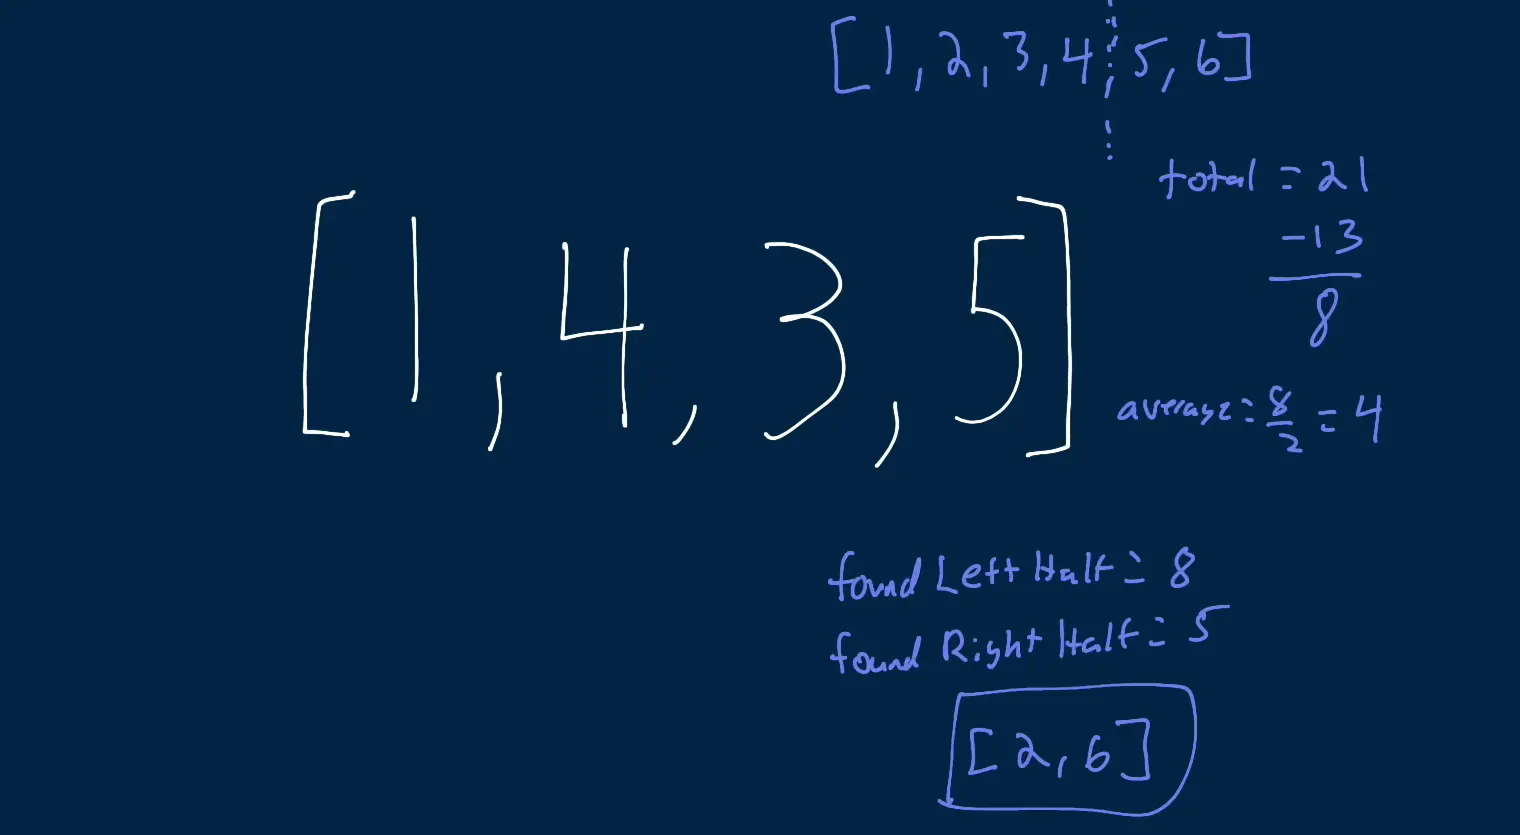 [1, 2, 3, 4, 5, 6]
total = 21
-13
8
[1, 4, 3, 5]
average = 8/2 = 4
found Left Half = 8
found Right Half = 5
[2, 6]